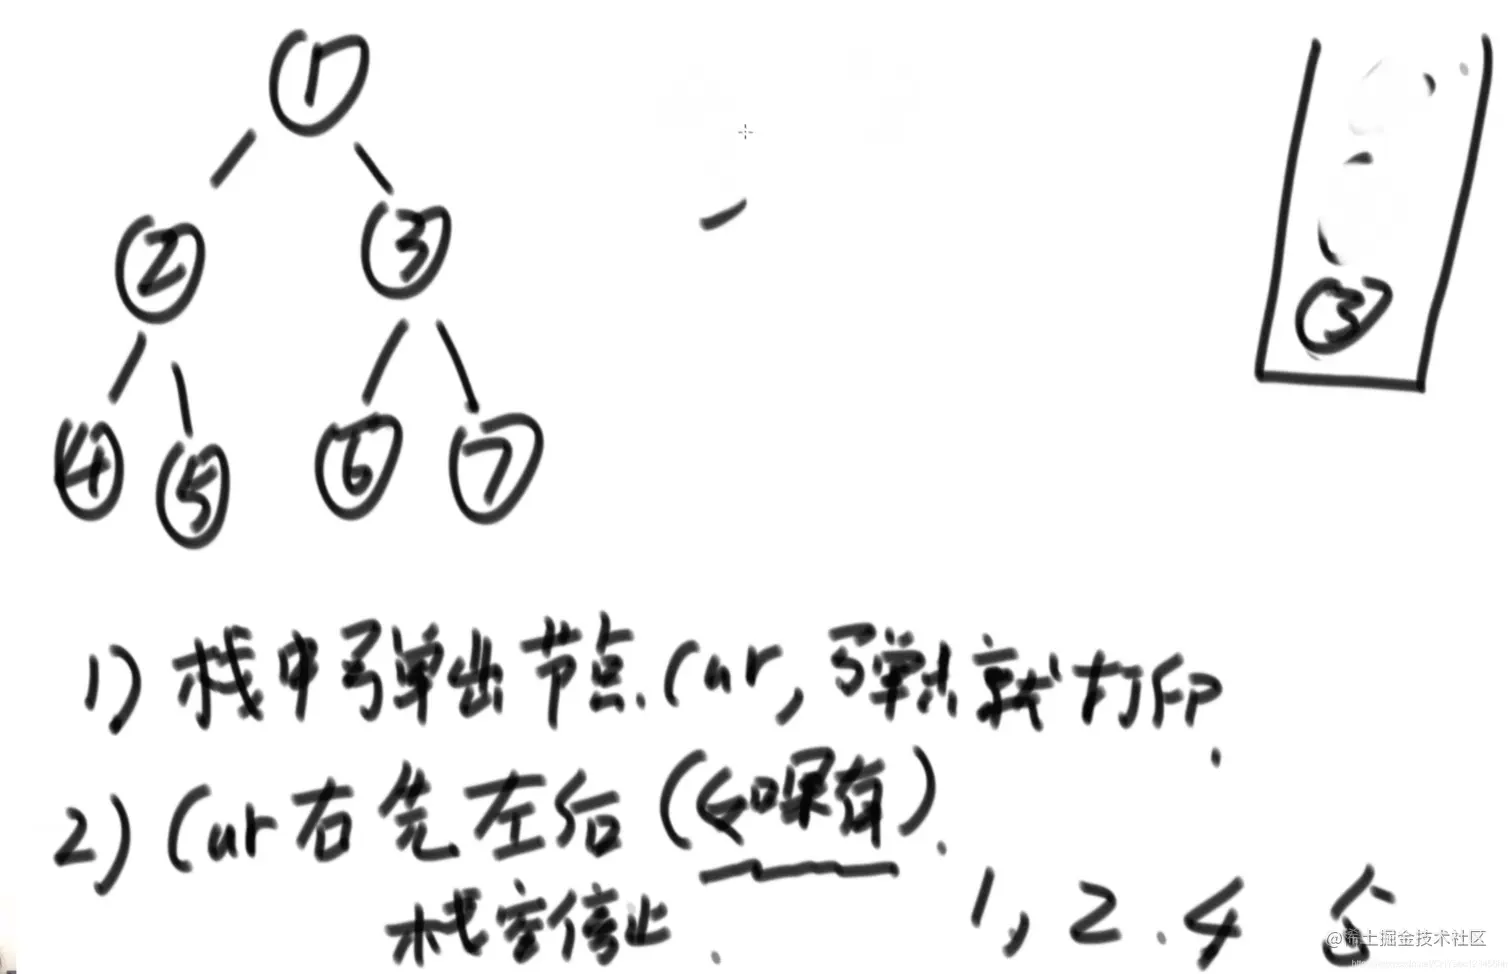 1
2 3
4 5 6 7
3
1) 栈中弹出节点.Cur, 弹出就打印.
2) Cur 右先左后 (如果有).
栈空停止.
1, 2. 4 5
@稀土掘金技术社区